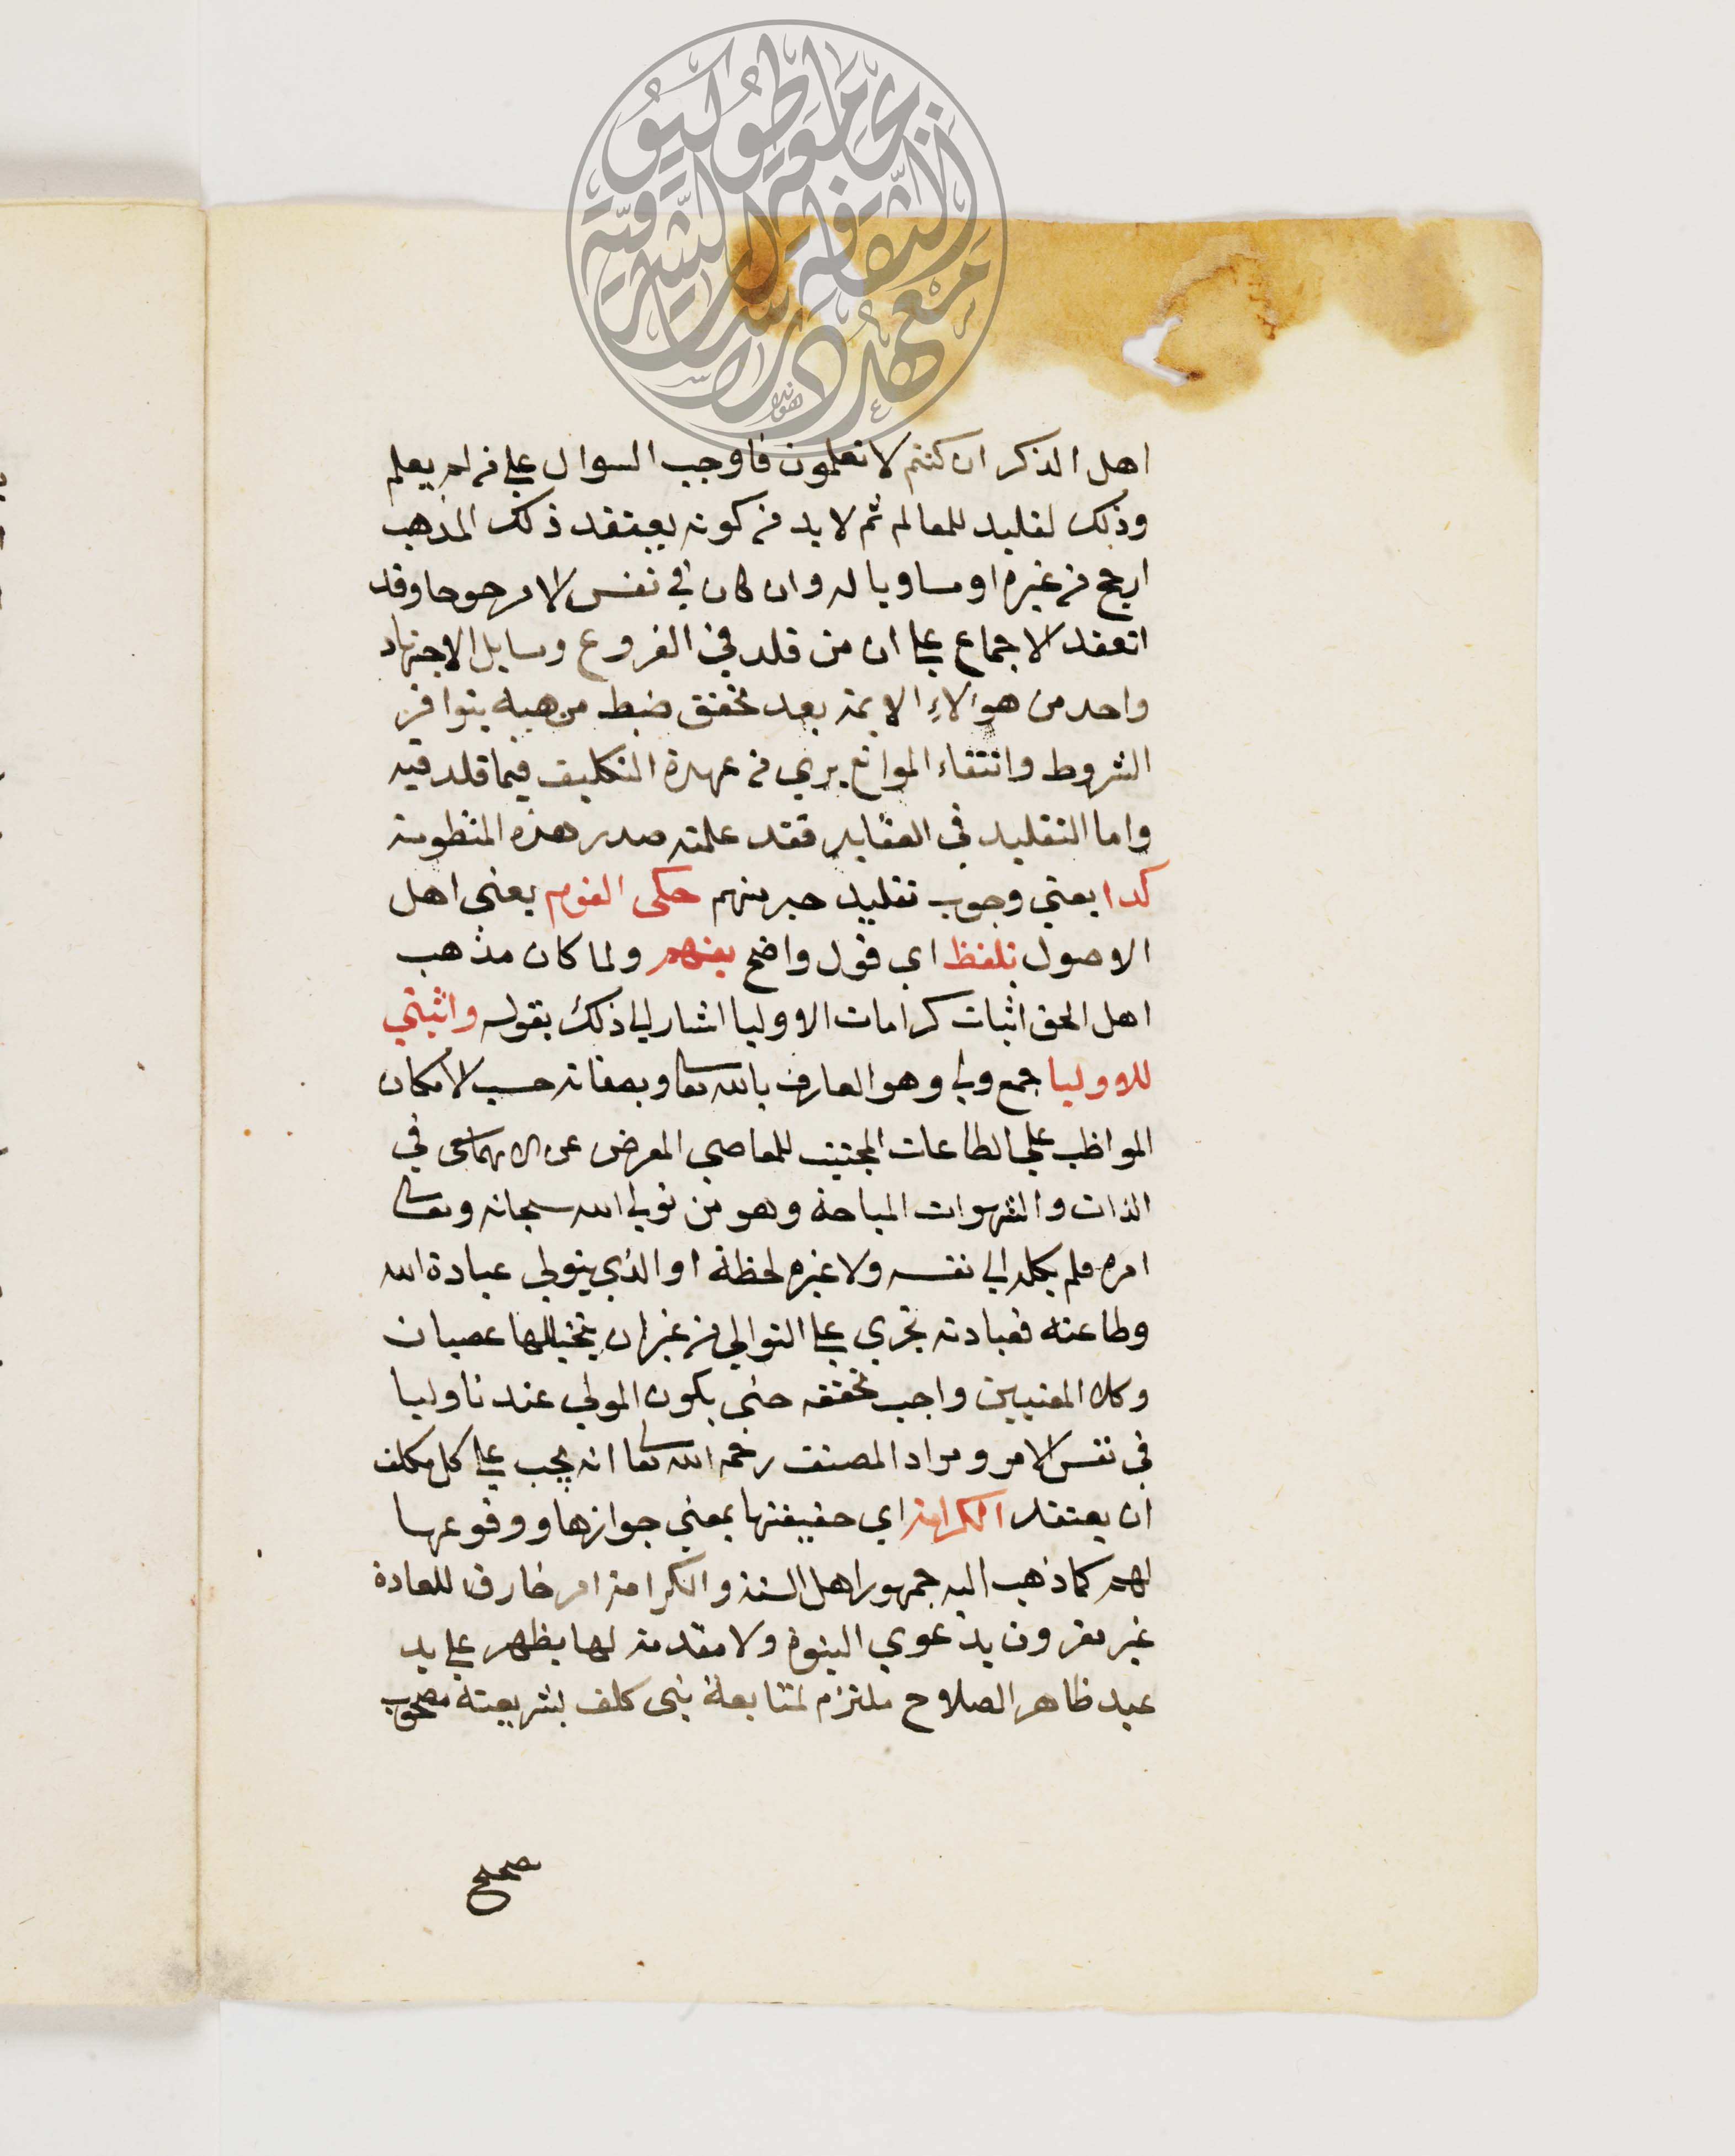 اهل الذكر ان كنتم لا تعلمون فاوجب السوال علي من لم يعلم
وذلك تقليد للعالم ثم لا بد من كونه يعتقد ذلك المذهب
ارجح من غيره او مساويا له وان كان في نفس الامر مرجوحا وقد
انعقد الاجماع علي ان من قلد في الفروع ومسايل الاجتهاد
واحد من هولاء الايمة بعد تحقق ضبط مذهبه بتوافر
الشروط وانتفاء الموانع بري من عهدة التكليف فيما قلد فيه
واما التقليد في العقايد فقد علمته صدر هذه المنظومة
كدا يعني وجوب تقليد حبر منهم حكى القوم يعني اهل
الاصول بلفظ اي قول واضح يفهم ولما كان مذهب
اهل الحق اثبات كرامات الاوليا اشار الي ذلك بقوله واثبتي
للاوليا جمع ولي وهو العارف بالله تعالى وبصفاته حسب الامكان
المواظب علي الطاعات المجتنب للمعاصي المعرض عن الانهماك في
الذات والشهوات المباحة وهو من تولي الله سبحانه وتعالى
امره فلم يكله الي نفسه ولا غيره لحظة او الذي يتولي عبادة الله
وطاعته فعبادته تجري علي التوالي من غير ان يتخللها عصيان
وكلا المعنيين واجب تحققه حتى يكون الولي عندنا وليا
في نفس الامر ومراد المصنف رحمه الله تعالى انه يجب علي كل مكلف
ان يعتقد الكرامة اي حقيقتها بمعني جوازها ووقوعها
لهم كما ذهب اليه جمهور اهل السنة والكرامة امر خارق للعادة
غير مقرون بدعوي النبوة ولا مقدمة لها يظهر علي يد
عبد ظاهر الصلاح ملتزم لمتابعة نبى كلف بشريعتة مصحوب
صحيح
جامعة طوكيو
معهد دراسات الثقافة الشرقية